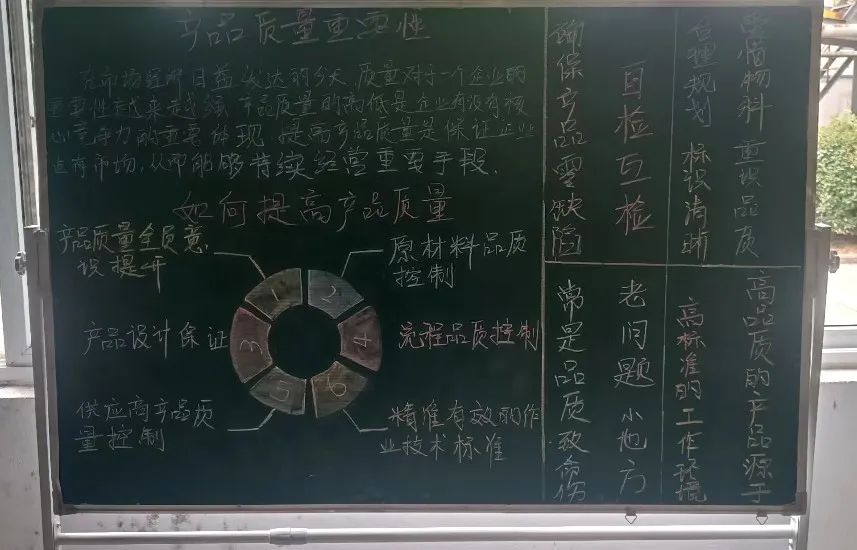 产品质量重要性
在市场经济日益发达的今天,质量对于一个企业的
重要性越来越强,产品质量的高低是企业有没有核
心竞争力的重要体现,提高产品质量是保证企业
占有市场,从而能够持续经营重要手段.
如何提高产品质量
产品质量全员意
识提升
1
2
原材料品质
控制
产品设计保证
3
4
过程品质控制
供应商产品质
量控制
5
6
精准有效的作
业技术标准
爱惜物料 重视品质
合理规划 标识清晰
自检互检
确保产品零缺陷
高品质的产品源于
高标准的工作环境
老问题小地方
常是品质致命伤